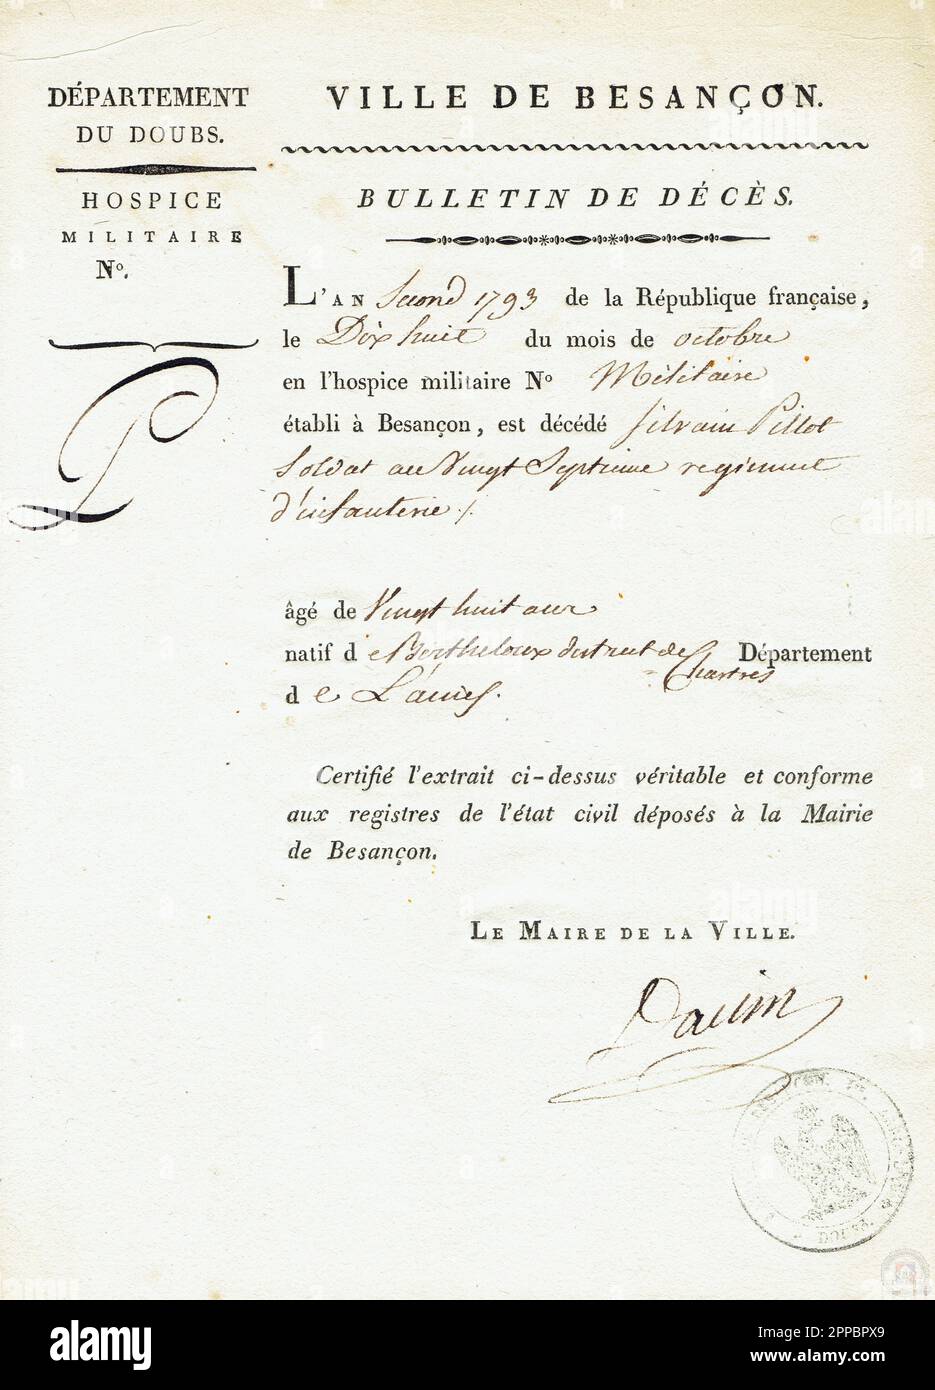 DÉPARTEMENT
DU DOUBS.
HOSPICE
MILITAIRE
Nº.
P
VILLE DE BESANÇON.
BULLETIN DE DÉCÈS.
L'AN Second 1793 de la République française,
le Dix huit du mois de octobre
en l'hospice militaire Nº Militaire
établi à Besançon, est décédé Silvain Pillot
Soldat au Vingt Septieme regiment
d'infanterie ./.
âgé de Vingt huit ans
natif de district de Chartres Département
de
Certifié l'extrait ci-dessus véritable et conforme
aux registres de l'état civil déposés à la Mairie
de Besançon.
LE MAIRE DE LA VILLE.
Daclin
DOUBS.
alamy
Image ID: 2PPBPX9
www.alamy.com